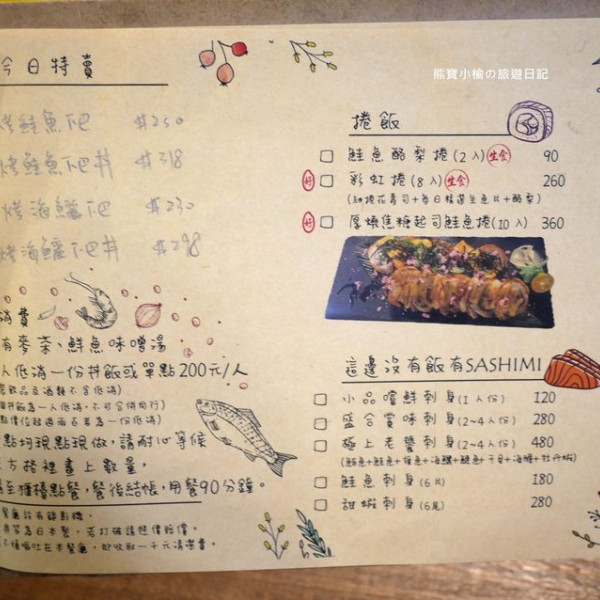 今日特賣
烤鮭魚下巴 #250
烤鮭魚下巴丼 #318
烤海鱺下巴 #230
烤海鱺下巴丼 #298
消費
有麥茶、鮮魚味噌湯
人低消一份丼飯或單點200元/人
點均現點現做,請耐心等候
方格裡畫上數量,
至櫃檯點餐,餐後結帳,用餐90分鐘。
熊寶小榆の旅遊日記
捲飯
鮭魚酪梨捲(2入) 生食 90
好 彩虹捲(8入) 生食 260
(細捲花壽司+每日精選生魚片+酪梨)
好 厚燒焦糖起司鮭魚捲(10入) 360
這邊沒有飯有SASHIMI
小品嚐鮮刺身(1人份) 120
盛合賞味刺身(2~4人份) 280
極上老饕刺身(2~4人份) 480
鮭魚刺身(6片) 180
甜蝦刺身(6尾) 280